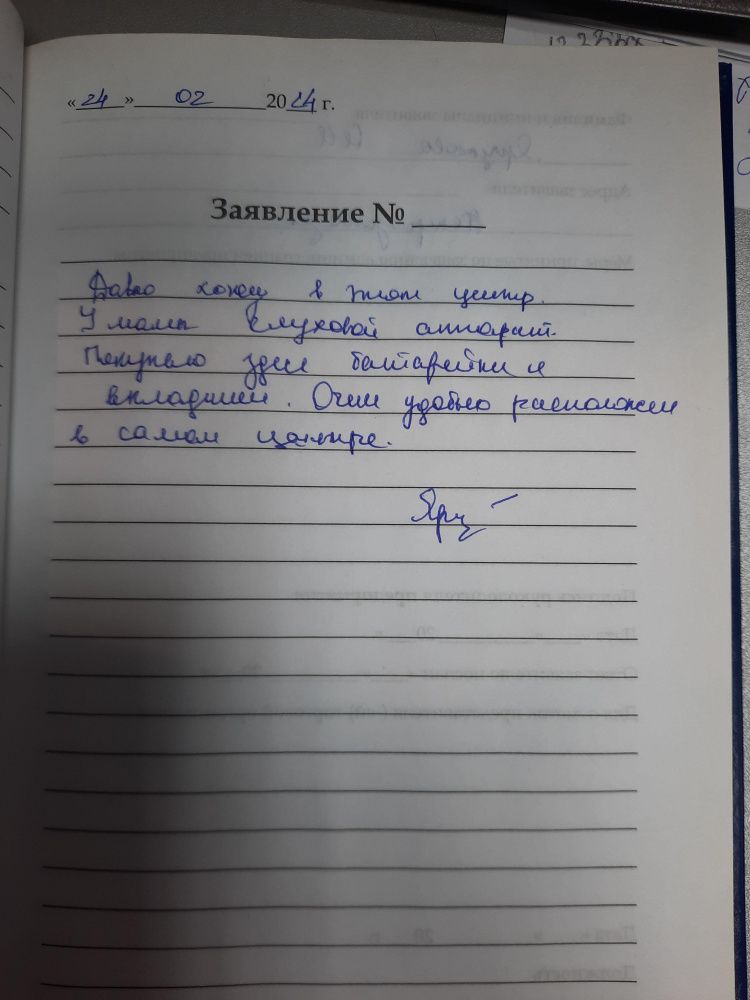 «24» 02 2024 г.
Заявление №
Давно хожу в этот центр.
У мамы слуховой аппарат.
Покупаю здесь баттарейки и
вкладыши. Очень удобно расположен
в самом центре.